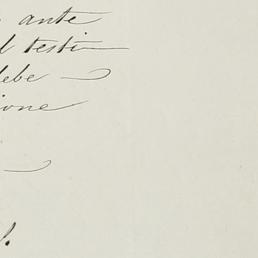 ante
l testi
debe
ione